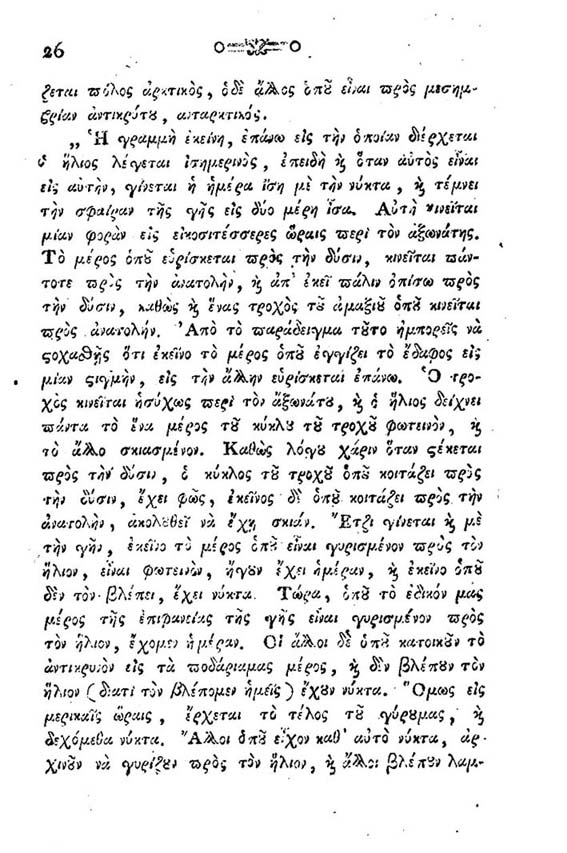 26
ζεται πόλος ἀρκτικὸς, ὁδὲ ἄλλος ὁποῦ εἶναι πρὸς μεσημ-
βρίαν ἀντικρύτου, ἀνταρκτικός.
„ Ἡ γραμμὴ ἐκείνη, ἐπάνω εἰς τὴν ὁποίαν διέρχεται
ὁ ἥλιος λέγεται ἰσημερινὸς, ἐπειδὴ ϗ ὅταν αὐτὸς εἶναι
εἰς αὐτὴν, γίνεται ἡ ἡμέρα ἴση μὲ τὴν νύκτα, ϗ τέμνει
τὴν σφαῖραν τῆς γῆς εἰς δύο μέρη ἴσα. Αὐτὴ κινεῖται
μίαν φορὰν εἰς εἰκοσιτέσσερες ὥραις περὶ τὸν ἀξωνάτης.
Τὸ μέρος ὁποῦ εὑρίσκεται πρὸς τὴν δύσιν, κινεῖται πάν-
τοτε πρὸς τὴν ἀνατολὴν, ϗ ἀπ' ἐκεῖ πάλιν ὀπίσω πρὸς
τὴν δύσιν, καθὼς ϗ ἕνας τροχὸς τοῦ ἁμαξιοῦ ὁποῦ κινεῖται
πρὸς ἀνατολήν. Ἀπὸ τὸ παράδειγμα τοῦτο ἠμπορεῖς νὰ
ϛοχασθῇς ὅτι ἐκεῖνο τὸ μέρος ὁποῦ ἐγγίζει τὸ ἔδαφος εἰς
μίαν ϛιγμὴν, εἰς τὴν ἄλλην εὑρίσκεται ἐπάνω. Ὁ τρο-
χὸς κινεῖται ἡσύχως περὶ τὸν ἄξωνάτου, ϗ ὁ ἥλιος δείχνει
πάντα τὸ ἕνα μέρος τοῦ κύκλου τοῦ τροχοῦ φωτεινὸν, ϗ
τὸ ἄλλο σκιασμένον. Καθὼς λόγου χάριν ὅταν ϛέκεται
πρὸς τὴν δύσιν, ὁ κύκλος τοῦ τροχοῦ ὁποῦ κοιτάζει πρὸς
τὴν δύσιν, ἔχει φῶς, ἐκεῖνος δὲ ὁποῦ κοιτάζει πρὸς τὴν
ἀνατολὴν, ἀκολουθεῖ νὰ ἔχῃ σκιάν. Ἔτζι γίνεται ϗ μὲ
τὴν γῆν, ἐκεῖνο τὸ μέρος ὁποῦ εἶναι γυρισμένον πρὸς τὸν
ἥλιον, εἶναι φωτεινὸν, ἤγουν ἔχει ἡμέραν, ϗ ἐκεῖνο ὁποῦ
δὲν τὸν βλέπει, ἔχει νύκτα. Τώρα, ὁποῦ τὸ ἐδικόν μας
μέρος τῆς ἐπιφανείας τῆς γῆς εἶναι γυρισμένον πρὸς
τὸν ἥλιον, ἔχομεν ἡμέραν. Οἱ ἄλλοι δὲ ὁποῦ κατοικοῦν τὸ
ἀντικρυνὸν εἰς τὰ ποδάριαμας μέρος, ϗ δὲν βλέπουν τὸν
ἥλιον (διατὶ τὸν βλέπομεν ἡμεῖς) ἔχουν νύκτα. Ὅμως εἰς
μερικαῖς ὥραις, ἔρχεται τὸ τέλος τοῦ γύρουμας, ϗ
δεχόμεθα νύκτα. Ἄλλοι ὁποῦ εἶχον καθ' αὐτὸ νύκτα, ἀρ-
χινοῦν νὰ γυρίζουν πρὸς τὸν ἥλιον, ϗ ἄλλοι βλέπουν λαμ-